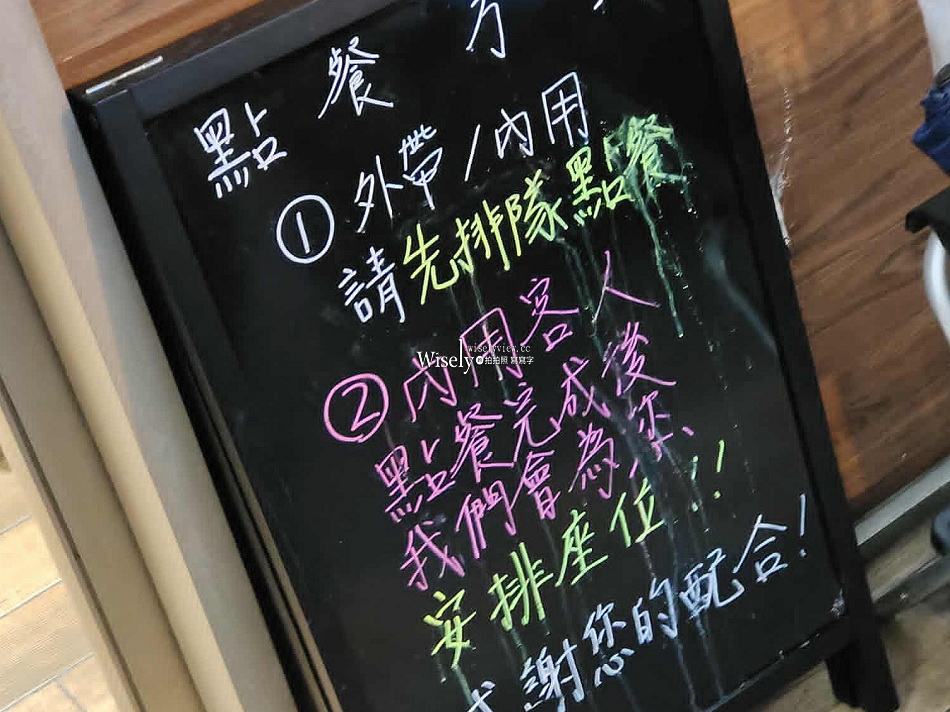 點餐方
①外帶/內用
請先排隊點餐
②內用客人
點餐完成後
我們會為您
安排座位!!
謝您的配合!
Wisely
wiselyview.cc
拍拍照 寫寫字